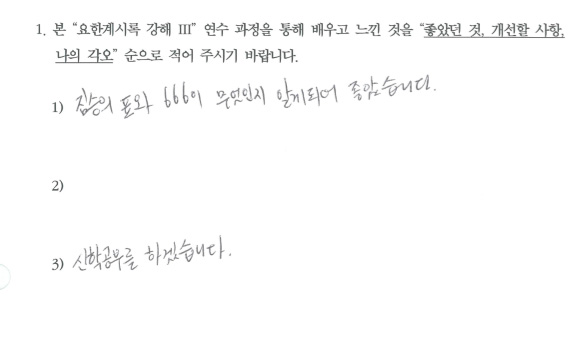 1. 본 “요한계시록 강해 III” 연수 과정을 통해 배우고 느낀 것을 “좋았던 것, 개선할 사항,
나의 각오” 순으로 적어 주시기 바랍니다.
1) 짐승의 표와 666이 무엇인지 알게되어 좋았습니다.
2)
3) 신학공부를 하겠습니다.